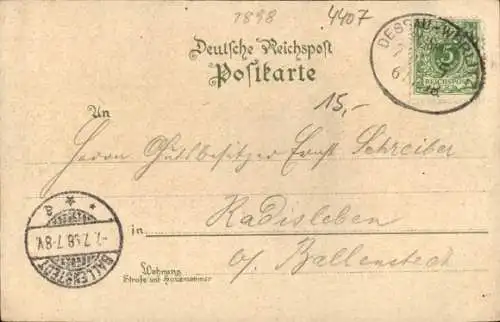 1898
4407
DESSAU-WÖRLITZ
REICHSPOST
Deutsche Reichspost
Postkarte
15,-
An
Herrn Gutsbesitzer Ernst Schreiber
in Radisleben
a/ Ballenstedt
Wohnung
Straße und Hausnummer
BALLENSTEDT
7.7.98.7-8V.